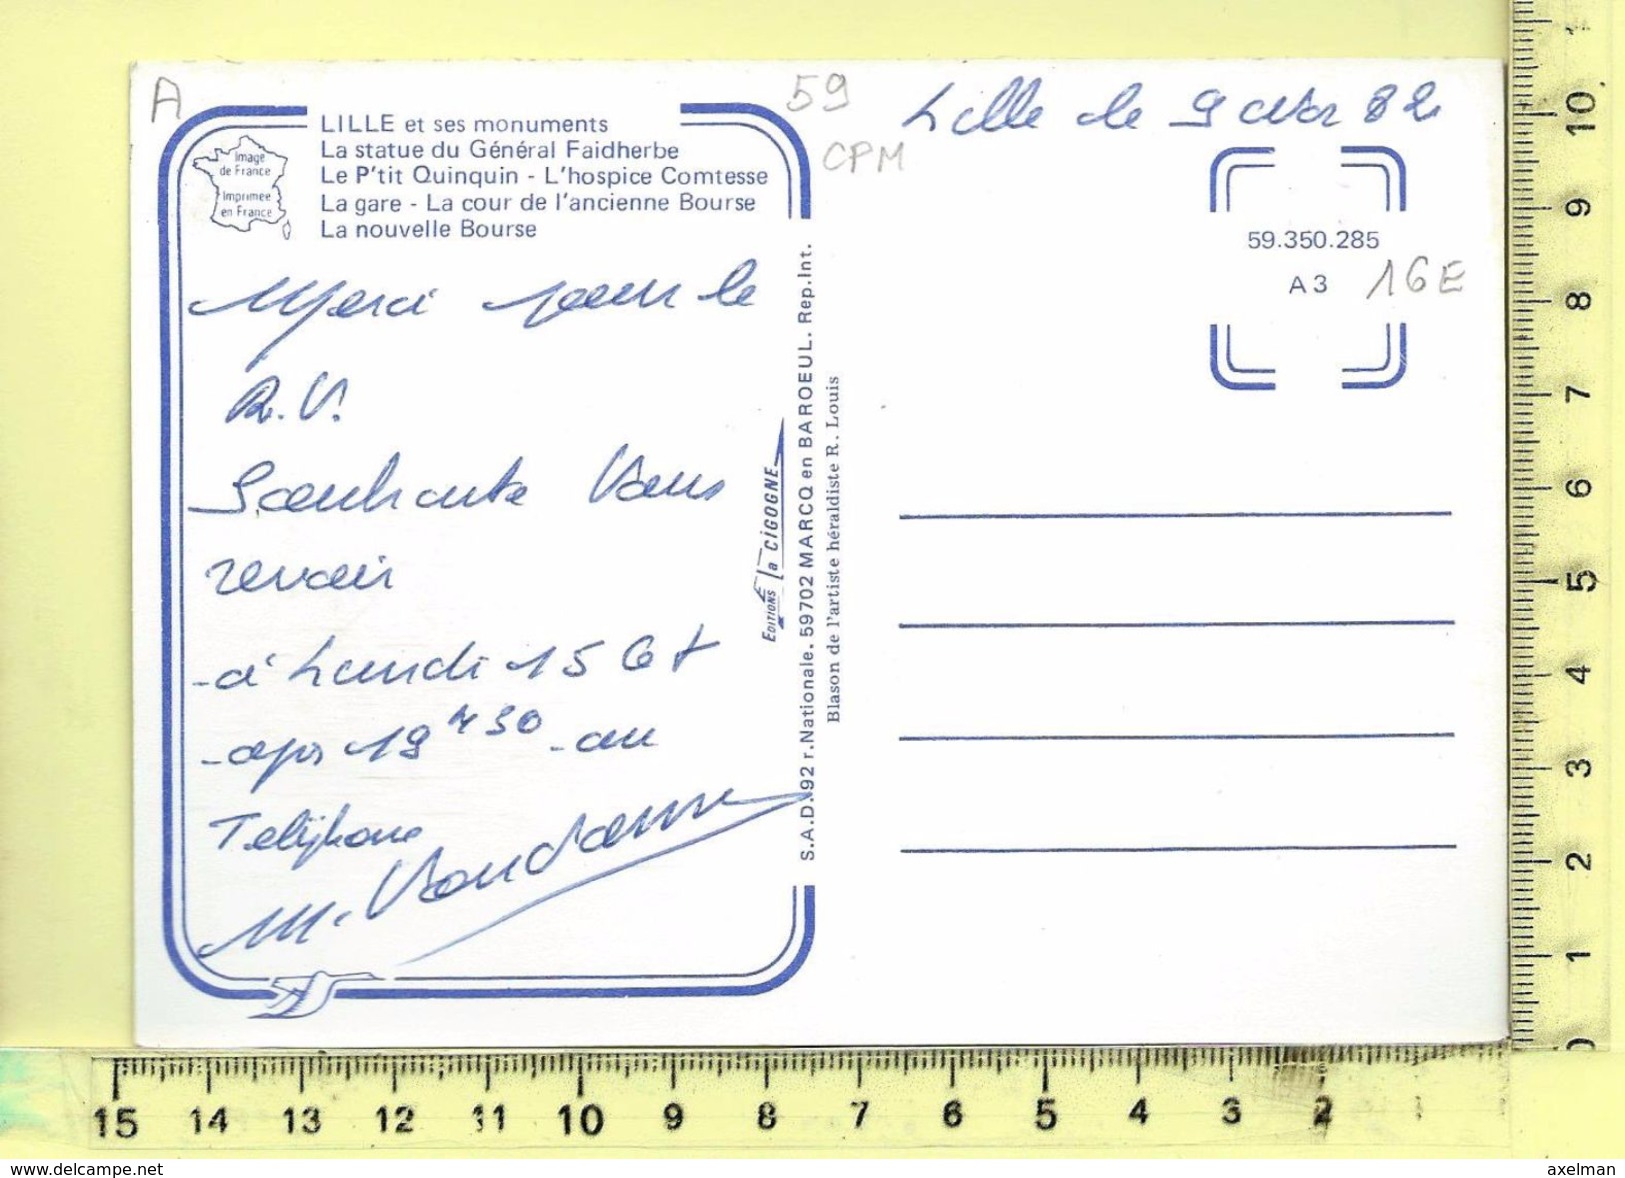 A
LILLE et ses monuments
La statue du Général Faidherbe
Le P'tit Quinquin - L'hospice Comtesse
La gare - La cour de l'ancienne Bourse
La nouvelle Bourse
Image
de France
Imprimée
en France
59
CPM
Lille le 9 82
59.350.285
A 3
16E
Merci pour le
R.V.
Souhaite Vous
revoir
à Lundi 15
19 H 30 - au
Telephone
M.
EDITIONS la CIGOGNE
S.A.D. 92 r. Nationale. 59702 MARCQ en BAROEUL. Rep. Int.
Blason de l'artiste héraldiste R. Louis
10
9
8
7
6
5
4
3
2
1
0
15 14 13 12 11 10 9 8 7 6 5 4 3 2 1
www.delcampe.net
axelman